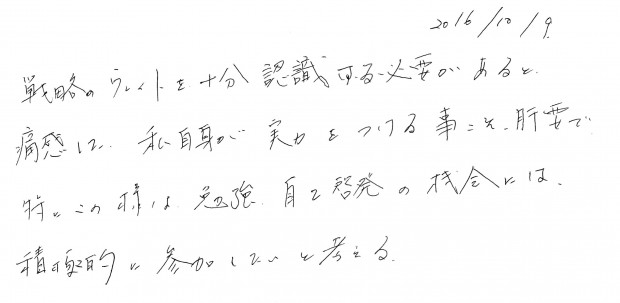 2016/10/9.
戦略のウェイトを十分認識する必要があると、
痛感した。私自身が実力をつける事こそ、肝要で
特にこの様な勉強、自己啓発の機会には、
積極的に参加したいと考える。